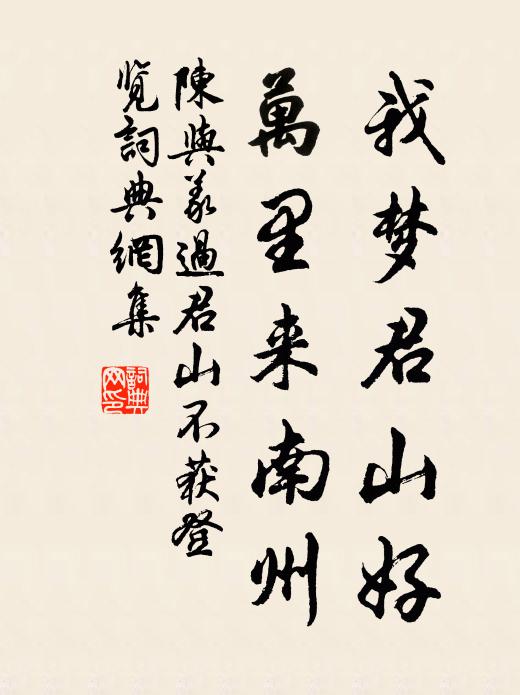 我梦君山好
萬里来南州
陳與義過君山不获登
览詞典網集
詞典
网印